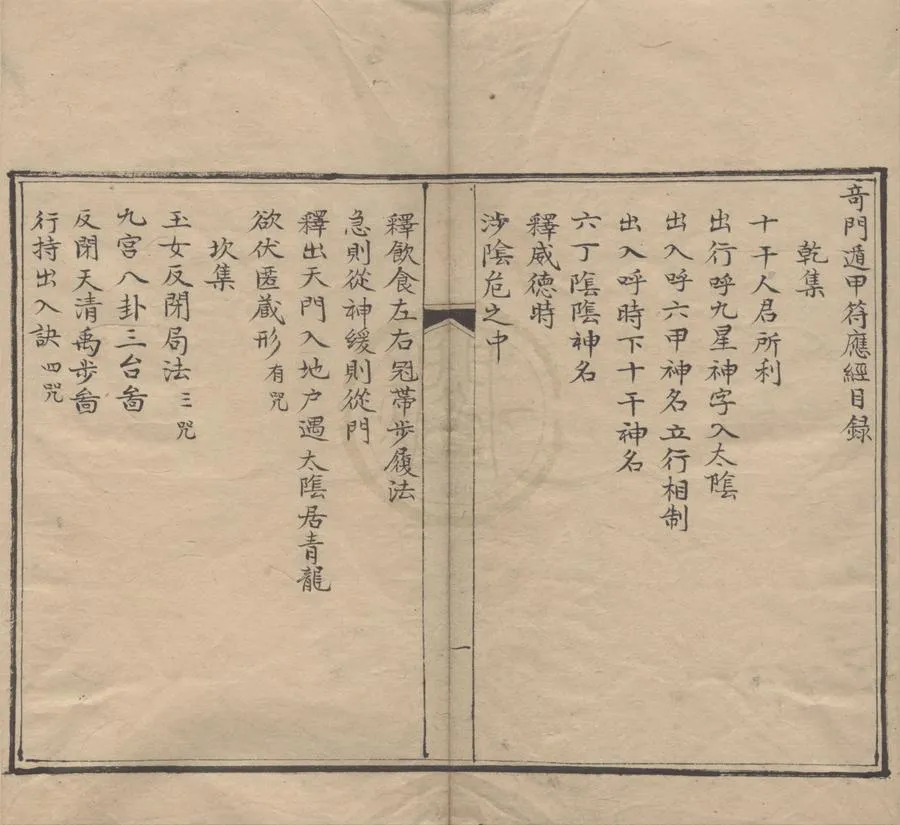 奇門遁甲符應經目録
乾集
十干人君所利
出行呼九星神字入太陰
出入呼六甲神名立行相制
出入呼時下十干神名
六丁陰陰神名
釋威德時
涉陰危之中
一
釋飲食左右冠帶步履法
急則從神緩則從門
釋出天門入地户遇太陰居青龍
欲伏匿蔵形 有咒
坎集
玉女反閉局法 三咒
九宮八卦三台啚
反閉天清禹步啚
行持出入訣 四咒